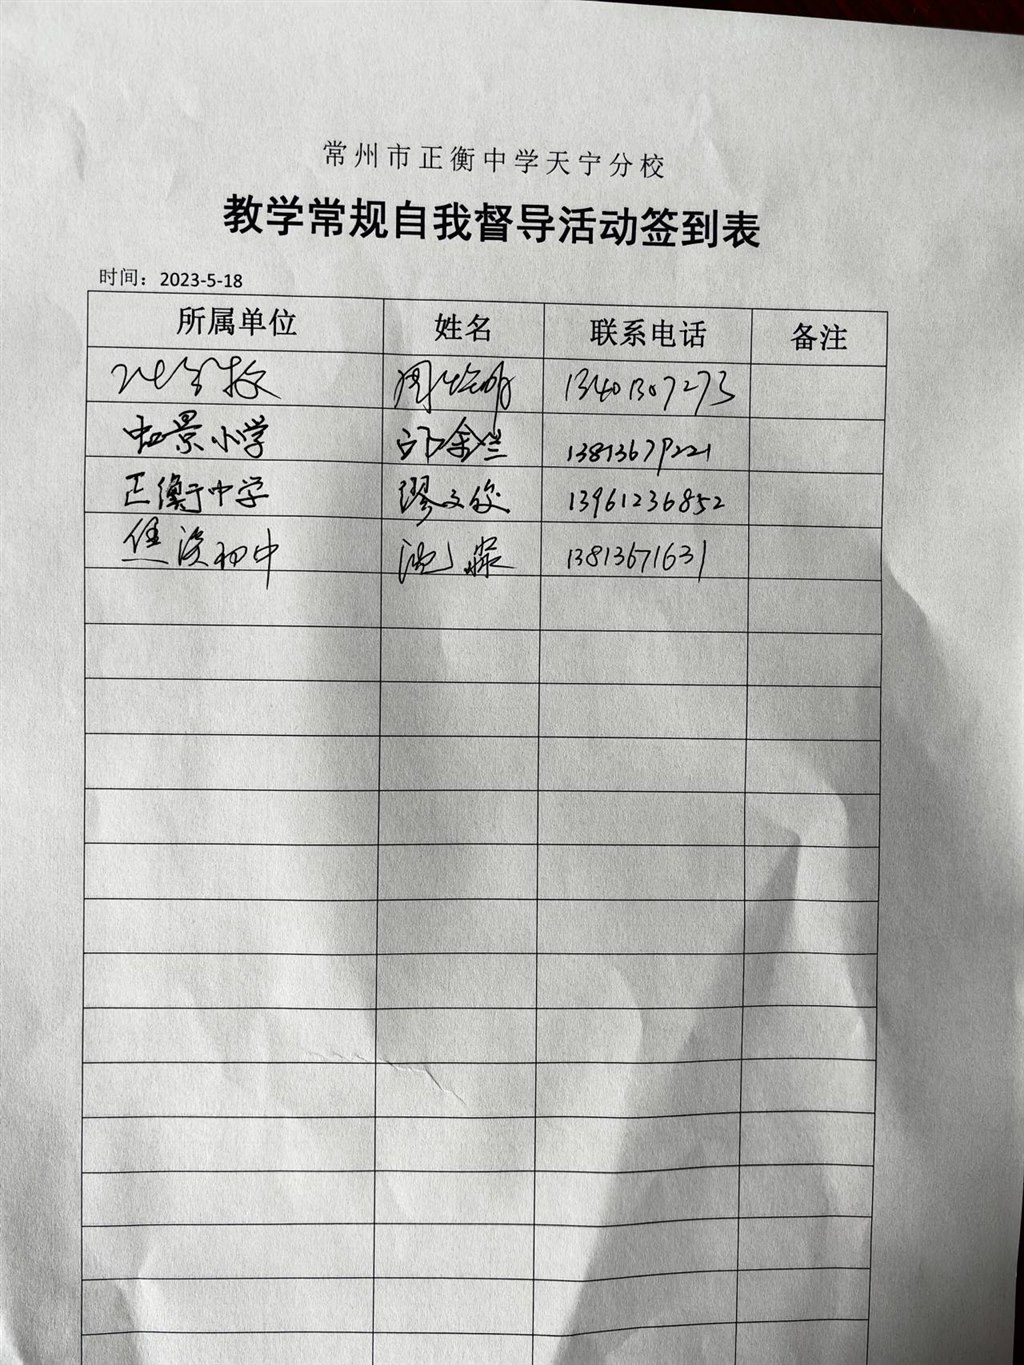 常州市正衡中学天宁分校
教学常规自我督导活动签到表
时间：2023-5-18
所属单位 姓名 联系电话 备注
13401307273
虹景小学 13813679221
正衡中学 缪文俊 13961236852
焦溪初中 沈霖 13813671631